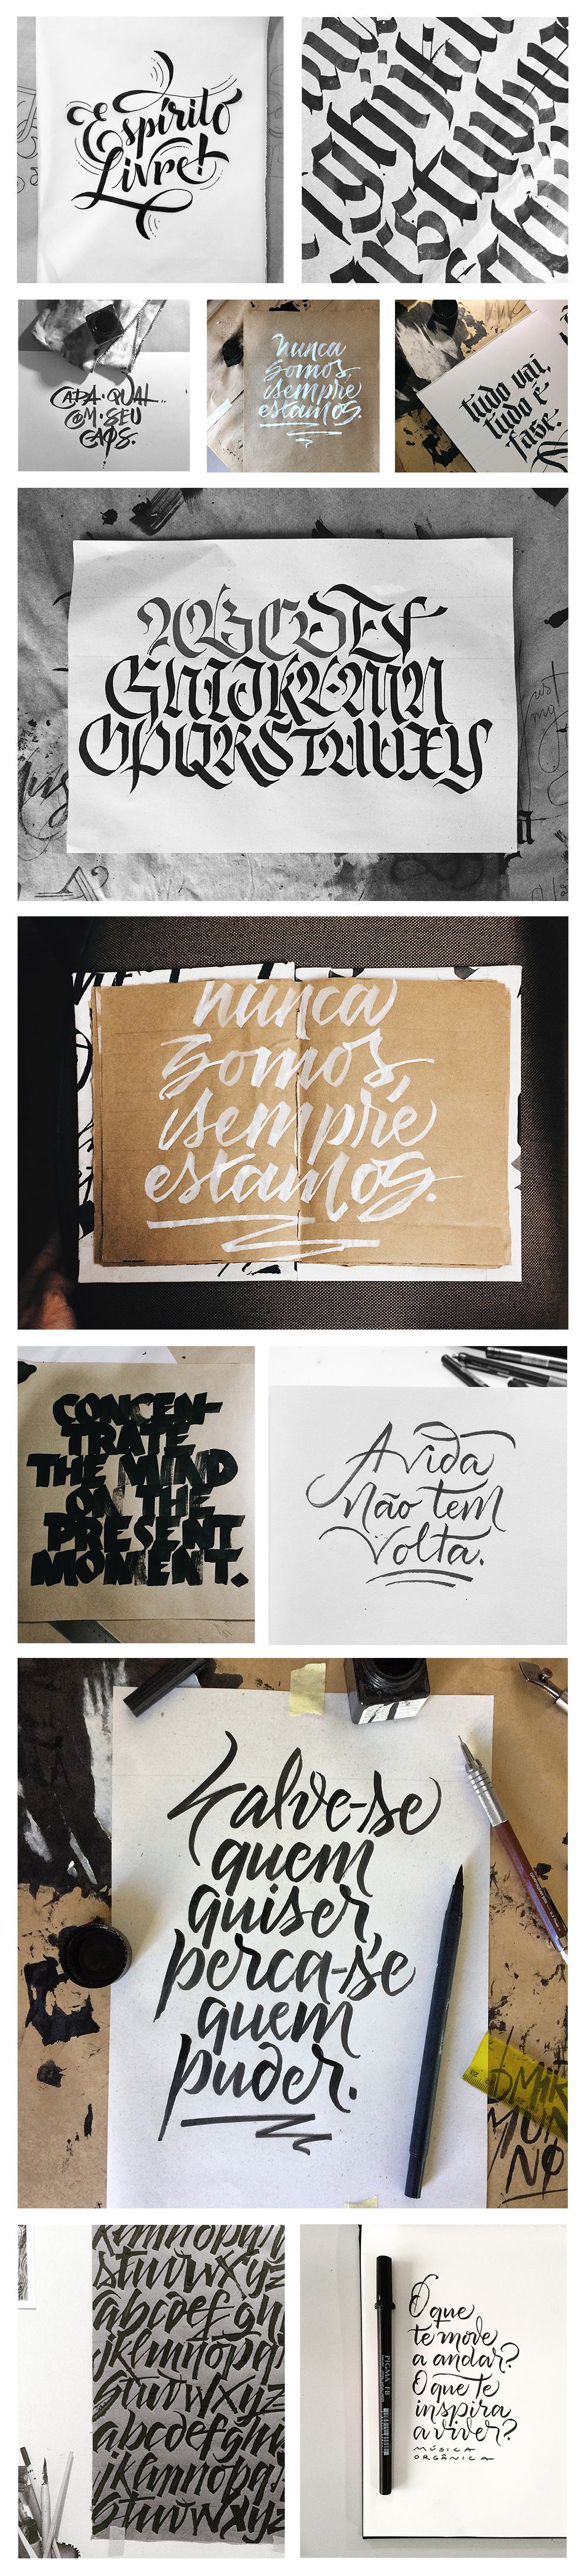 Espírito
Livre!
CADA·QUAL
COM·SEU
CAOS.
nunca
somos,
sempre
estamos.
tudo vai,
tudo é
fase.
ABCDEF
GHIJKLMN
OPQRSTUVXY
just
my
nunca
somos,
sempre
estamos.
CONCEN-
TRATE
THE MIND
ON THE
PRESENT
MOMENT.
A vida
não tem
volta.
Salve-se
quem
quiser,
perca-se
quem
puder.
klmnopqr
stuvwxyz
abcdefghi
jklmnopqr
stuvwxyz
abcdefghi
jklmnopqr
stuvwxyz
PIGMA FB
O que
te move
a andar?
O que te
inspira
a viver?
MÚSICA
ORGÂNICA